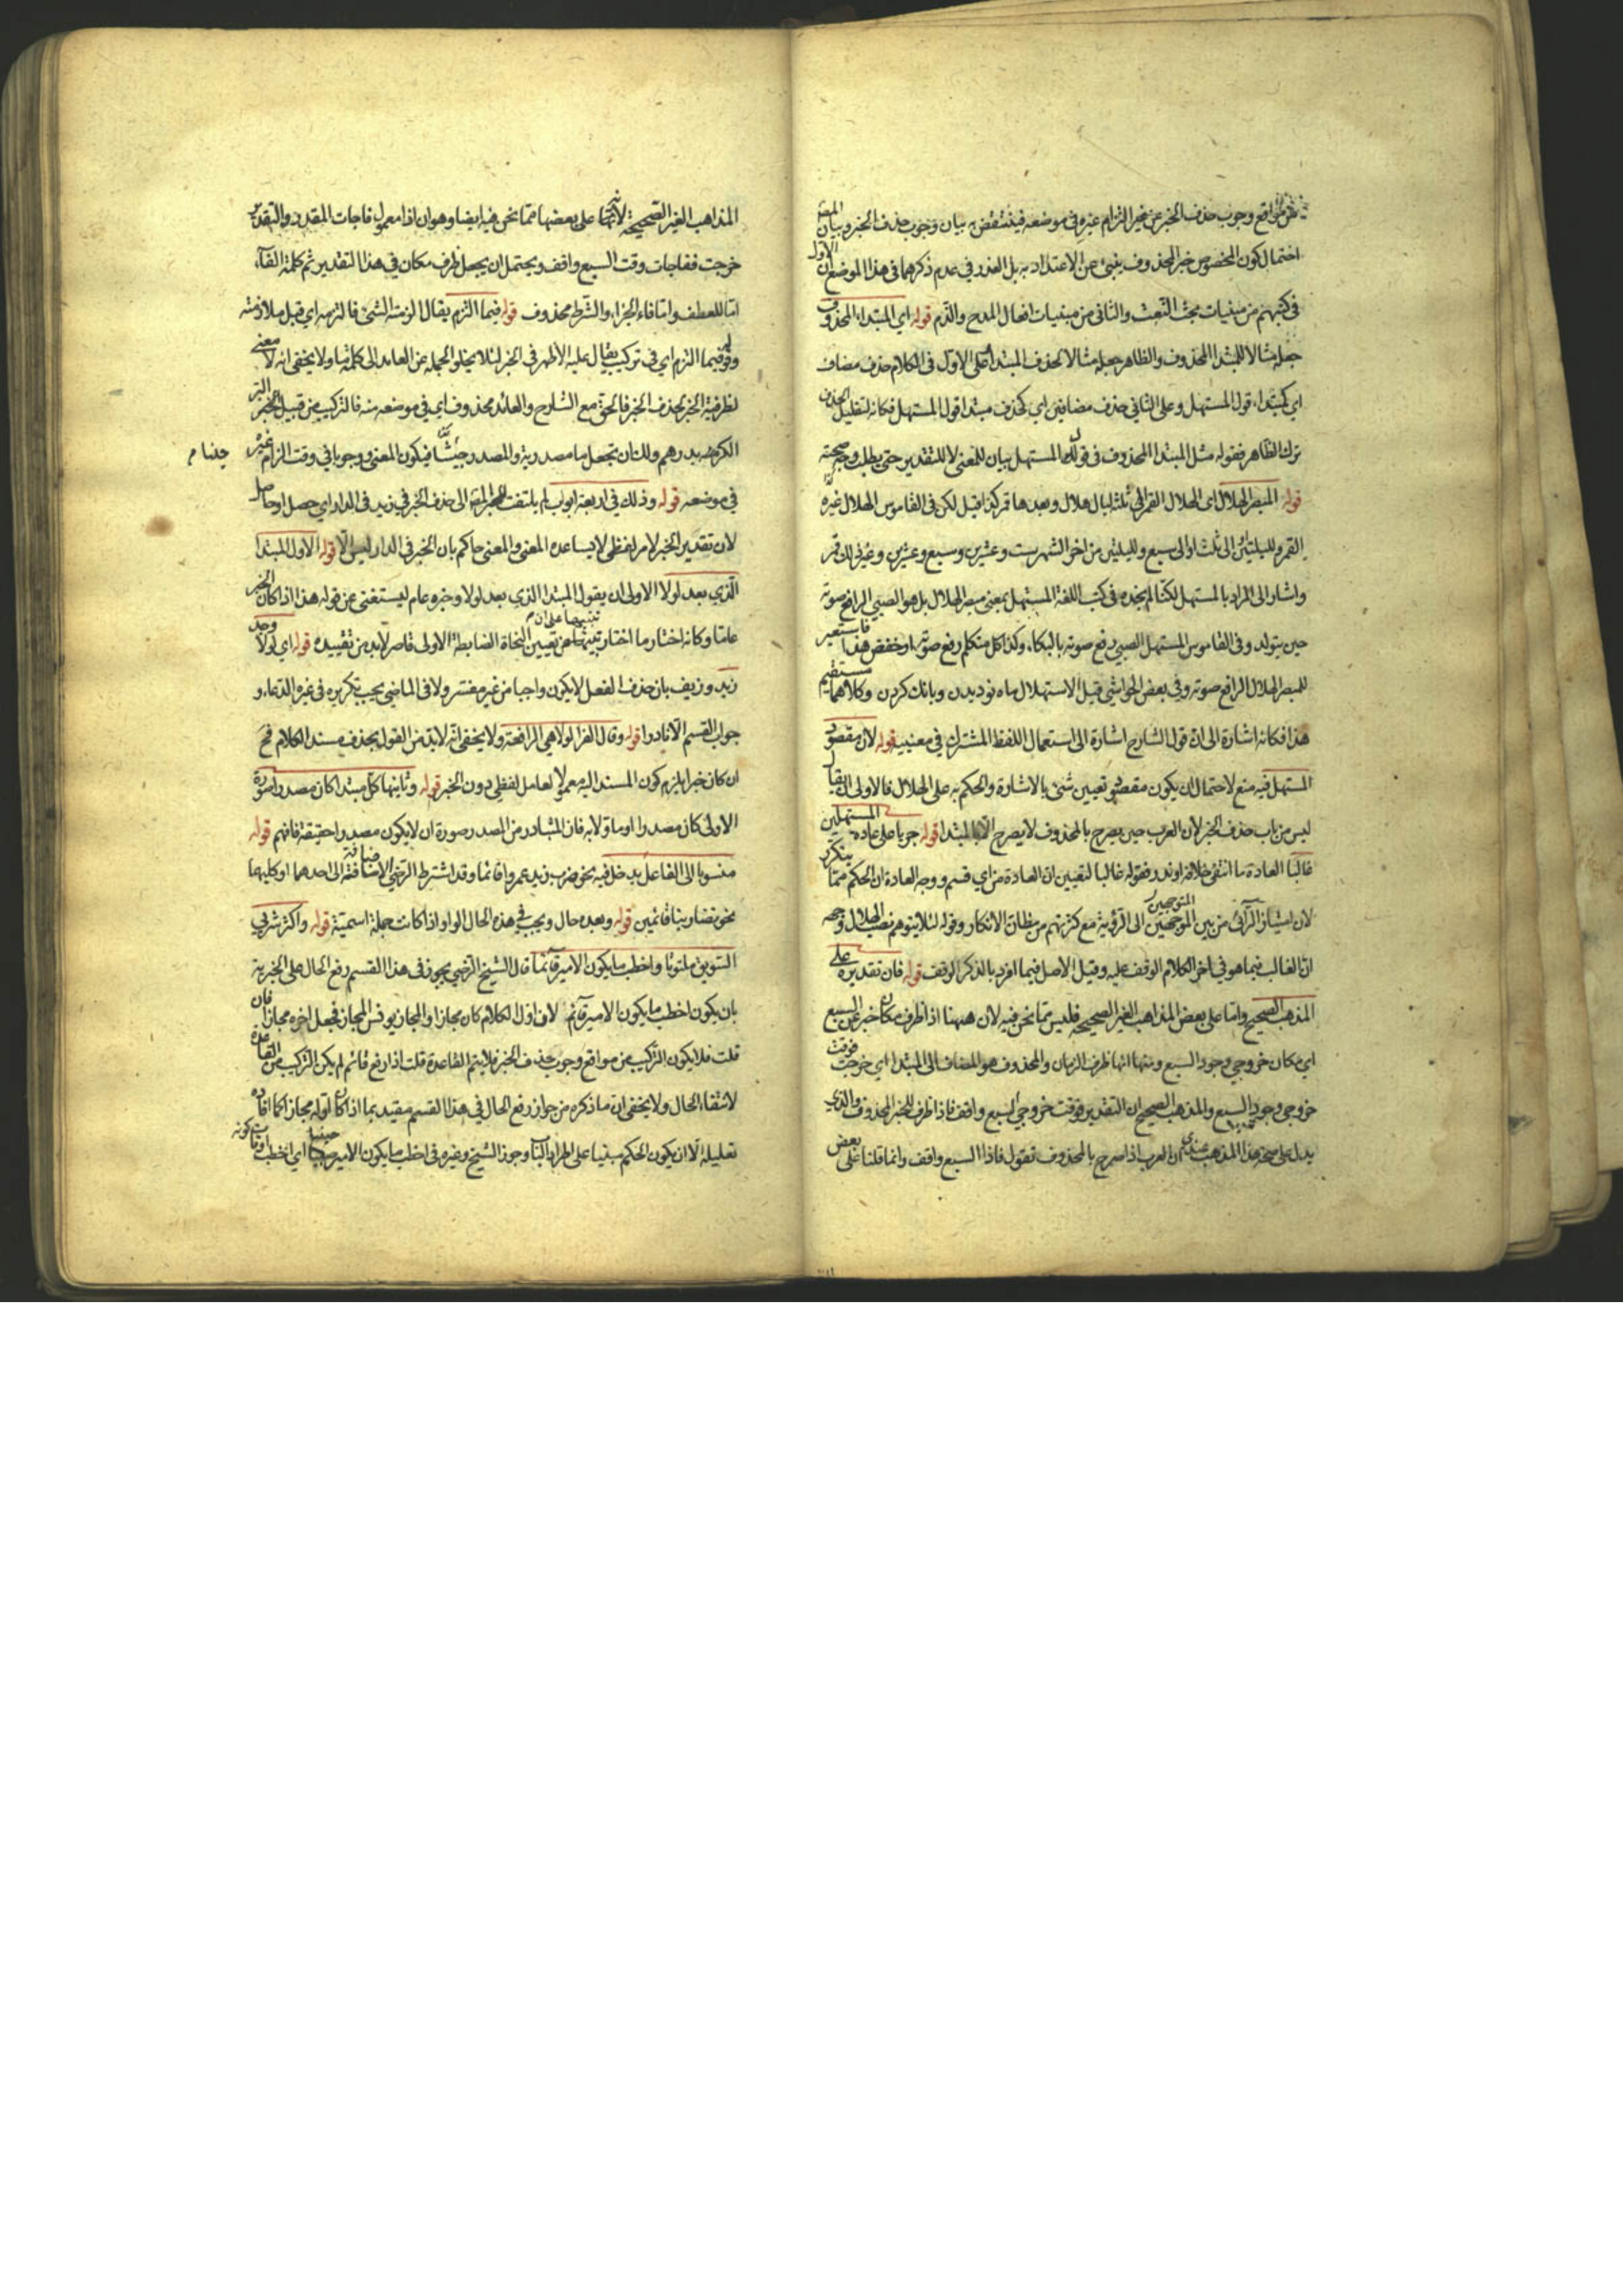 من مواقع وجوب حذف الخبر عن غير التزام غيره في موضعه فينتقض به بيان وجوب حذف الخبر وبيان المص
احتمال كون المخصوص خبر المحذوف ينبئ عن الاعتداد به بل العذر في عدم ذكرهما في هذا الموضع ان الاول
في كتبهم من مبنيات بحث النعت والثاني من مبنيات افعال المدح والذم قوله اي المبتداء المحذوف
جعله مثالا للمبتدا المحذوف والظاهر جعله مثالا لحذف المبتدا فعلى الاول في الكلام حذف مضاف
اي كمبتداء قول المستهل وعلى الثاني حذف مضافين اي كحذف مبتدا قول المستهل فكانه لتقليل الحذف
ترك الظاهر فقوله مثل المبتدا المحذوف في قول المستهل بيان للمعنى لا للتقدير حتى يطلب وجه صحته
قوله المبصر للهلال اي الهلال القمر الى ثلث ليال هلال وبعدها قمر كذا قيل لكن في القاموس الهلال غرة
القمر ولليلتين او الى ثلث او الى سبع ولليلتين من اخر الشهر ست وعشرين وسبع وعشرين وغير ذلك قمر
واشار الى المراد بالمستهل لكنا لم نجده في كتب اللغة المستهل بمعنى مبصر الهلال بل هو الصبي الرافع صوته
حين يتولد وفي القاموس المستهل الصبي رفع صوته بالبكاء وكذا كل متكلم رفع صوته او خفض هذا فاستعير
للمبصر الهلال الرافع صوته وفي بعض الحواشي قيل الاستهلال ماه نو ديدن وبانك كردن وكلاهما مستقيم
هذا فكانه اشارة الى ان قول الشارح اشارة الى استعمال اللفظ المشترك في معنييه قوله لان مقصود
المستهل فيه منع لاحتمال ان يكون مقصوده تعيين شئ بالاشارة والحكم به على الهلال فالاولى ان يقال
ليس من باب حذف الخبر لان العرب حين يصرح بالمحذوف لا يصرح الا بالمبتدا قوله جريا على عادة المستهلين
غالبا العادة ما انتفى خلافه او ندر فقوله غالبا لتعيين ان العادة من اي قسم ووجه العادة ان الحكم مما ينكر
لان امتياز الرائي من بين المتوجهين الى الرؤية مع كثرتهم من مظان الانكار وقوله لئلا يتوهم نصب الهلال وجهه
ان الغالب فيما هو في اخر الكلام الوقف عليه وقيل الاصل فيما افرد بالذكر الوقف قوله فان تقديره على
المذهب الصحيح واما على بعض المذاهب الغير الصحيحة فليس مما نحن فيه لان ههنا اذا ظرف مكان خبر عن السبع
اي مكان خروجي وجود السبع ومنها انها ظرف الزمان والمحذوف هو المضاف الى المبتدا اي خرجت فوقت
خروجي وجود السبع والمذهب الصحيح ان التقدير فوقت خروجي السبع واقف فاذا ظرف للخبر المحذوف والذي
يدل على صحة هذا المذهب عندي ان العرب اذا صرح بالمحذوف تقول فاذا السبع واقف وانما قلنا على بعض
المذاهب الغير الصحيحة لانها على بعضها مما نحن فيه ايضا وهو ان اذا معمول فاجات المقدر والتقدير
خرجت ففاجات وقت السبع واقف ويحتمل ان يجعل ظرف مكان في هذا التقدير ثم كلمة الفاء
اما للعطف واما فاء الجزاء والشرط محذوف قوله فيما التزم يقال الزمته الشئ فالتزمه اي قبل ملازمته
وقوله فيما التزم اي في تركيب يقال عليه الاظهر في الخبر لئلا يخلو الجملة عن العائد الى كلمة ما ولا يخفى انه لا معنى
لظرفية الخبر لحذف الخبر فالحق مع الشارح والعائد محذوف اي في موضعه منه فالتركيب من قبيل البر
الكر منه بدرهم ولك ان تجعل ما مصدرية والمصدر حينيا فيكون المعنى ووجوبا في وقت الزام غيره
حينيا م
في موضعه قوله وذلك في اربعة ابواب لم يلتفت المص الى حذف الخبر في زيد في الدار اي حصل او حاصل
لان تقدير الخبر لامر لفظي لا يساعده المعنى والمعنى حاكم بان الخبر في الدار ليس الا قوله الاول المبتدا
الذي بعد لولا الاولى ان يقول المبتدا الذي بعد لولا وخبره عام ليستغنى عن قوله هذا اذا كان الخبر
عاما وكانه اختار ما اختار تنبيها على ان تعيين النحاة الضابطة الاولى قاصر لابد من تقييده قوله اي لولا وجد
زيد وزيف بان حذف الفعل لا يكون واجبا من غير مفسر ولا في الماضي يجب تكريره في غير الدعاء و
جواب القسم الا نادرا قوله وقال الفراء لولا هي الرافعة ولا يخفى انه لابد من القول بحذف مسند الكلام فح
ان كان خبرا يلزم كون المسند اليه معمولا لعامل لفظي دون الخبر قوله وثانيها كل مبتدا كان مصدرا صورة
الاولى كان مصدرا او ماولا به فان المتبادر من المصدر صورة ان لا يكون مصدرا حقيقة فافهم قوله
منسوبا الى الفاعل يدخل فيه نحو ضرب زيد عمروا قائما وقد اشترط الرضي الاضافة الى احدهما او كليهما
نحو تضاربنا قائمين قوله وبعده حال ويجب في هذه الحال الواو اذا كانت جملة اسمية قوله واكثر شربي
السويق ملتوتا واخطب ما يكون الامير قائما قال الشيخ الرضي يجوز في هذا القسم رفع الحال على الخبرية
بان يكون اخطب ما يكون الامير قائم لان اول الكلام كان مجازا والمجاز يونس المجاز فجعل اخره مجازا فان
قلت فلا يكون التركيب من مواقع وجوب حذف الخبر فلا يتم القاعدة قلت اذا رفع قائم لم يكن التركيب من القاعدة
لانتفاء الحال ولا يخفى ان ما ذكره من جواز رفع الحال في هذا القسم مقيد بما اذا كان اوله مجازا كما افاده
تعليله الا ان يكون الحكم مبنيا على اطراد الباب وجوز الشيخ وغيره في اخطب ما يكون الامير حينيا اي اخطب اوقات كونه